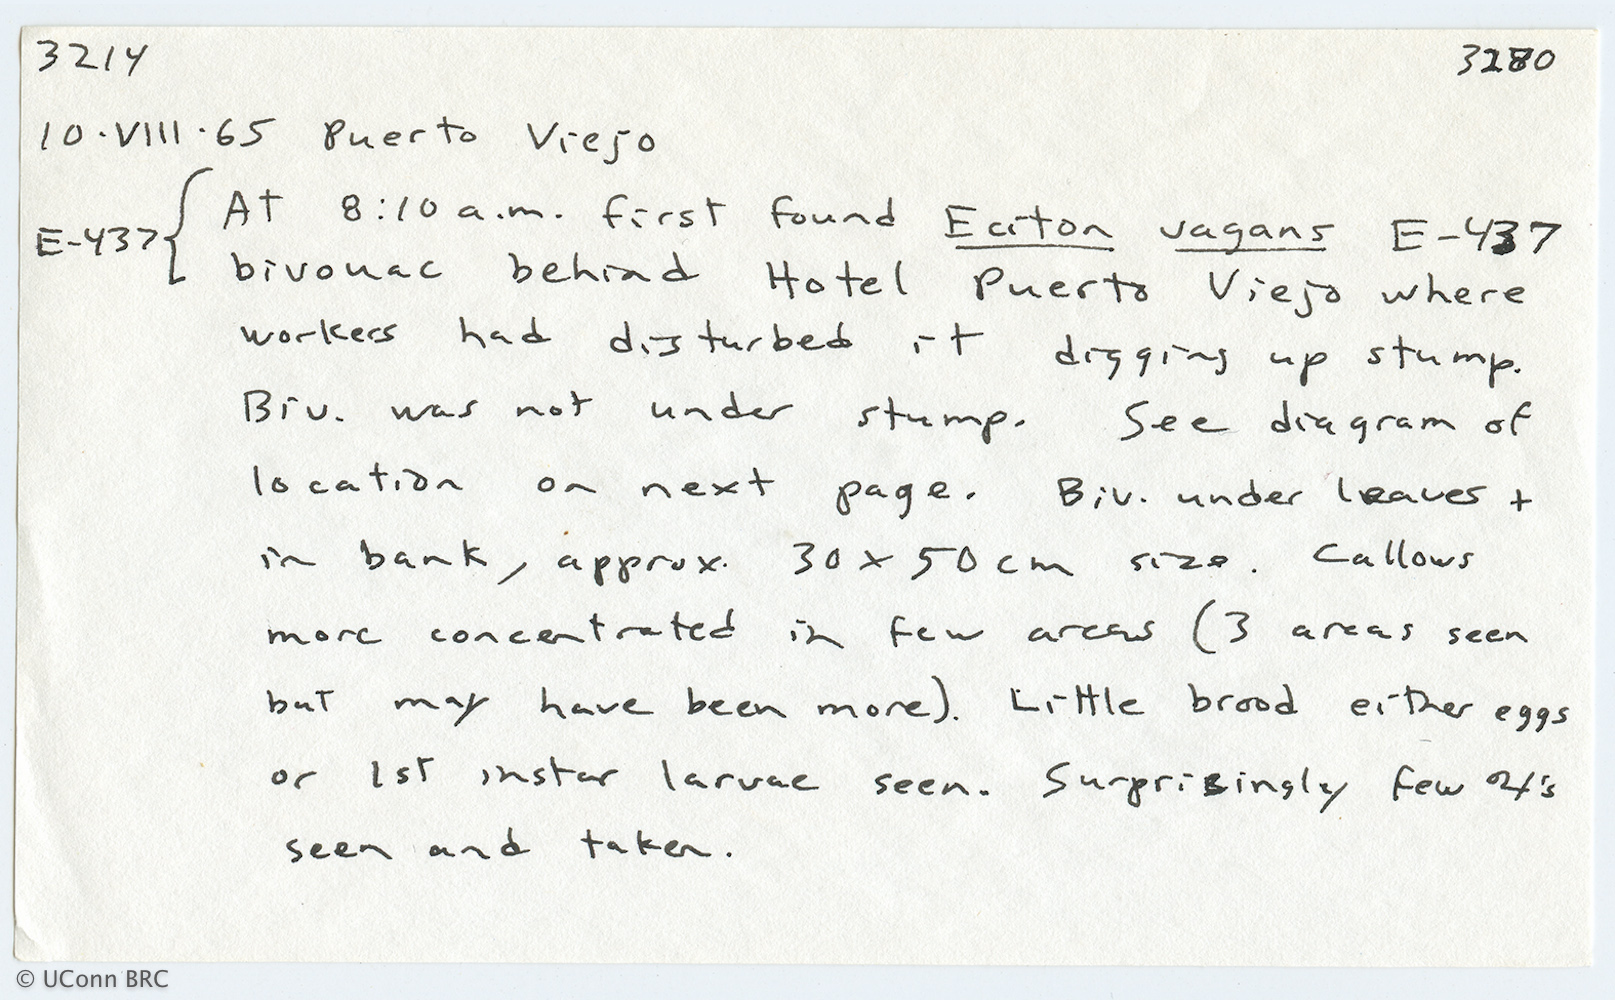 3214 3280
10·VIII·65 Puerto Viejo
At 8:10 a.m. first found Eciton vagans E-437
E-437{
bivouac behind Hotel Puerto Viejo where
workers had disturbed it digging up stump.
Biv. was not under stump. See diagram of
location on next page. Biv. under leaves +
in bank, approx. 30 x 50 cm size. Callows
more concentrated in few areas (3 areas seen
but may have been more). Little brood either eggs
or 1st instar larvae seen. Surprisingly few
seen and taken.
© UConn BRC